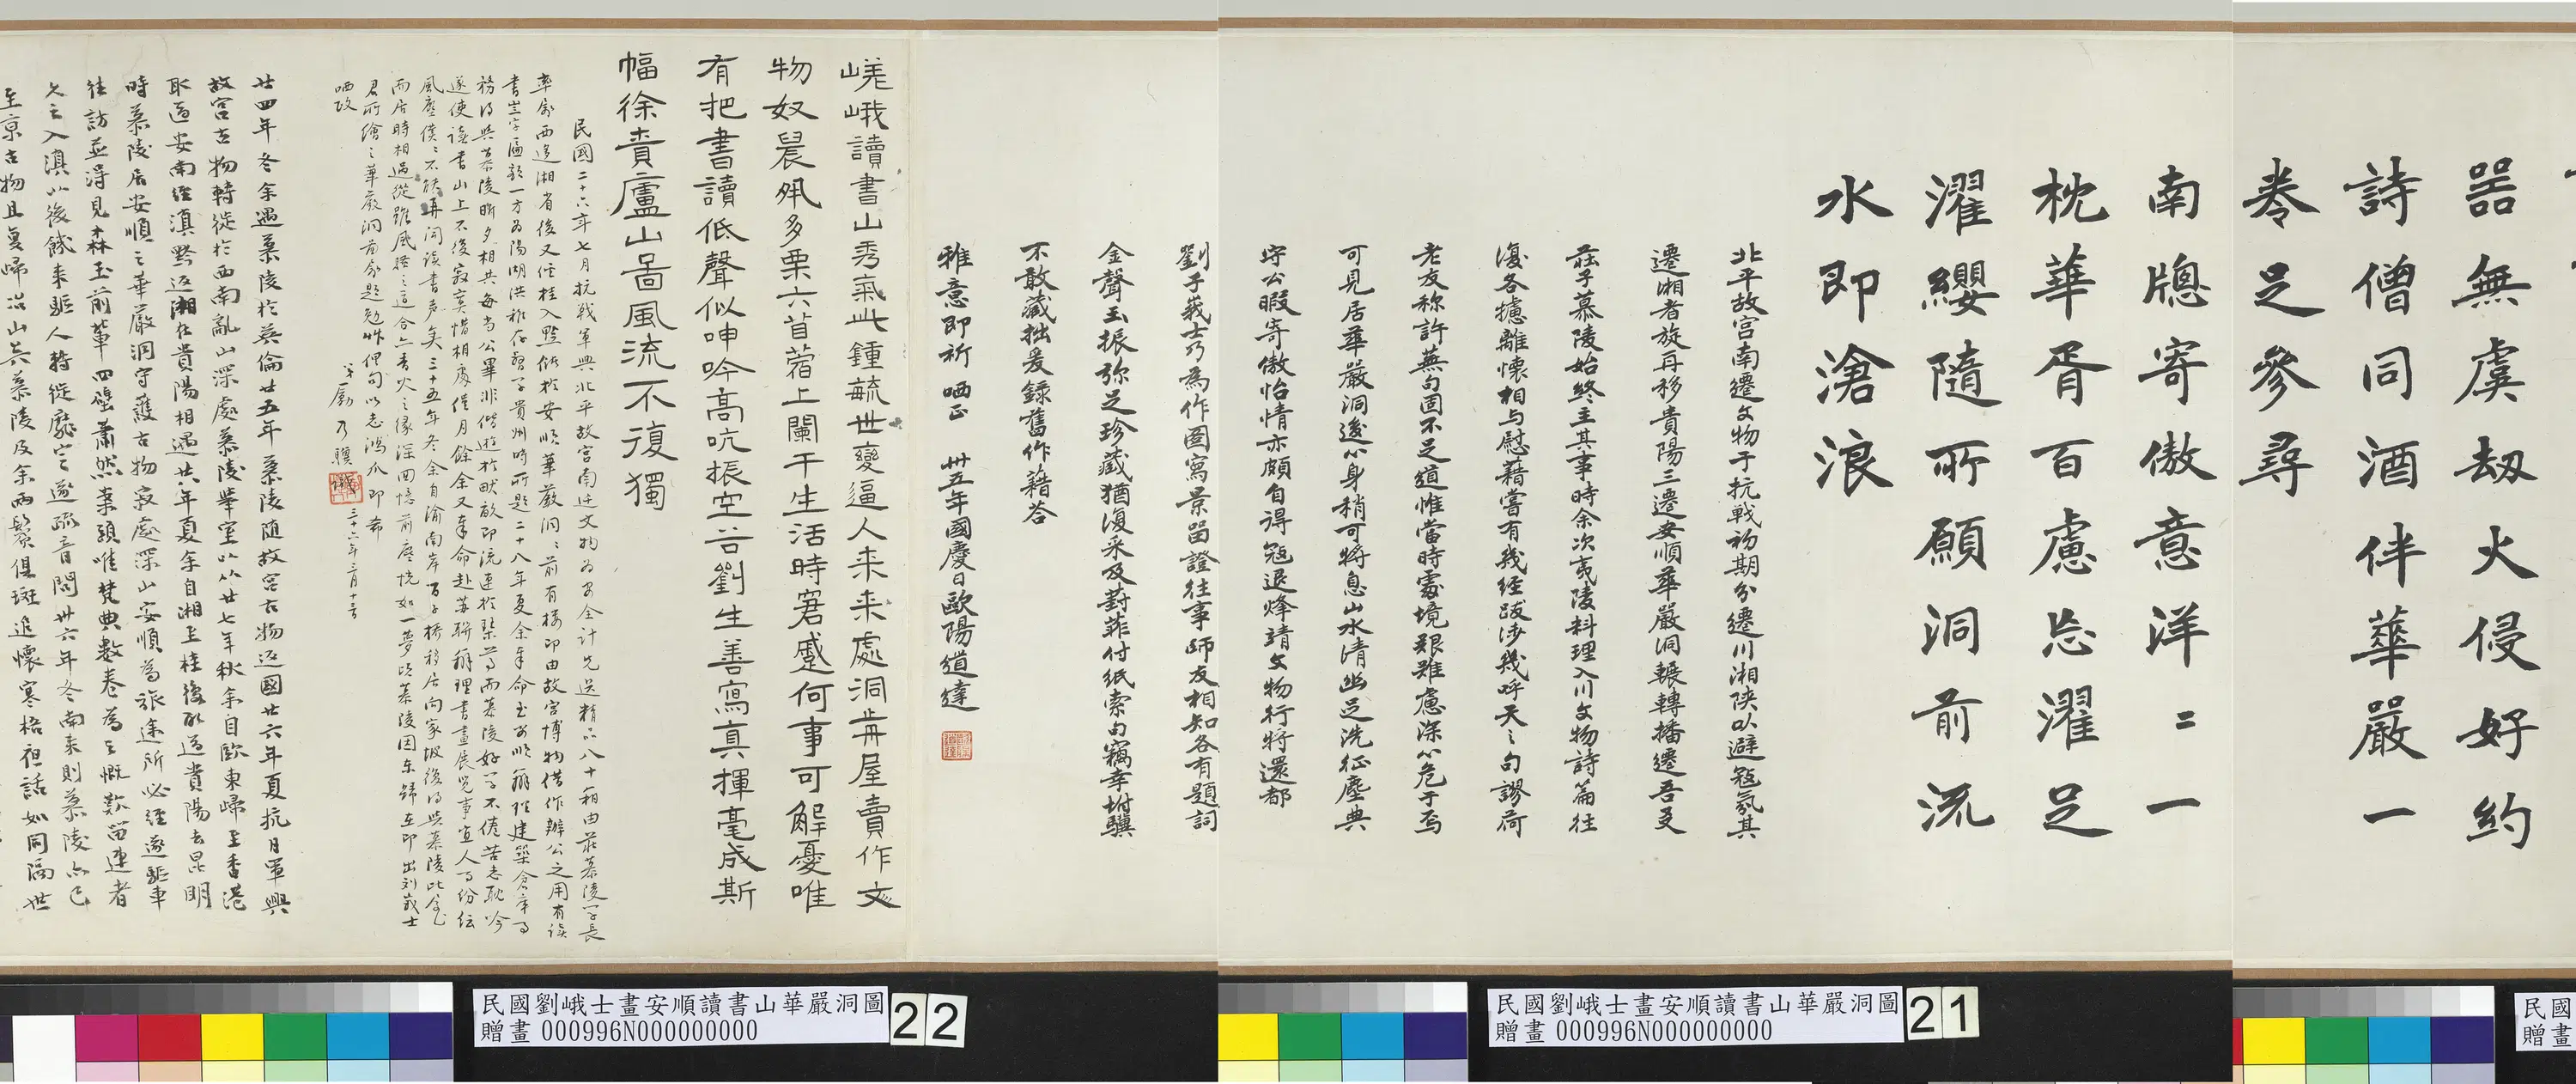 嚣無虞劫火侵好約
詩僧同酒伴華嚴一
卷足參尋
南牕寄傲意洋〻一
枕華胥百慮忘濯足
濯纓隨所願洞前流
水即滄浪
北平故宮南遷文物于抗戰初期分遷川湘陝以避寇氛其
遷湘者旋再移貴陽三遷安順華嚴洞輾轉播遷吾友
莊子慕陵始終主其事時余次夷陵料理入川文物詩篇往
復各攄離懷相与慰藉嘗有幾經跋涉幾呼天〻句謬荷
老友称許蕪句固不足道惟當時處境艱難慮深心危于焉
可見居華嚴洞後心身稍可將息山水清幽足洗征塵典
守公暇寄傲怡情亦頗自得寇退烽靖文物行將還都
劉子峩士乃為作圖寫景留證往事師友相知各有題詞
金聲玉振弥足珍藏猶復采及葑菲付紙索句竊幸坿驥
不敢藏拙爰錄舊作藉荅
雅意即祈 哂正 卅五年國慶日歐陽道達
嵯峨讀書山秀氣此鍾毓世變逼人来来處洞歬屋賣作文
物奴晨夙多栗六苜蓿上闌干生活時窘蹙何事可解憂唯
有把書讀低聲似呻吟高吭振空谷劉生善寫真揮毫成斯
幅徐賁廬山啚風流不復獨
民國二十六年七月抗戰軍興北平故宮南迁文物为安全計先送精品八十箱由莊慕陵學長
率領西遷湘省後又徙桂入黔儲於安順華嚴洞〻前有樓即由故宮博物借作辦公之用有讀
書山三字匾額一方为陽湖洪稚存督學貴州時所題二十八年夏余奉命至安順辦理建築倉庫事
務得与慕陵晰夕相共每当公畢非偕遊於畎畝即流連於琴書而慕陵好學不倦苦志耽吟
遂使讀書山上不復寂寞惜相處僅月餘余又奉命赴苏聯辦理書畫展览事宜人事纷纭
風塵僕〻不獲再聞讀書声矣三十五年冬余自渝南岸海子橋移居向家坡後得与慕陵比舍
而居時相過從雖風塵之遇合亦香火之緣深回憶前塵恍如一夢頃慕陵因东歸在即出刘峩士
君所繪之華嚴洞圖屬題勉成俚句以志鴻爪即希
哂政
弟勵乃驥 三十六年三月十二日
廿四年冬余遇慕陵於英倫廿五年慕陵随故宮古物返國廿六年夏抗日軍興
故宮古物轉徙於西南亂山深處慕陵舉室以從廿七年秋余自歐東歸至香港
取道安南經滇黔返湘在貴陽相遇廿八年夏余自湘至桂後取道貴陽去昆明
時慕陵居安順之華嚴洞守護古物寂處深山安順為旅途所必經遂驅車
往訪並得見森玉前輩四壁蕭然案頭唯梵典數卷為之慨歎留連者
久之入滇以後餓来驅人轉徙靡定遂疏音問卅六年冬南来則慕陵亦已
至京古物且复歸冶山矣慕陵及余兩鬢俱斑追懷寒榕夜話如同隔世
民國劉峨士畫安順讀書山華嚴洞圖
贈畫 000996N000000000
22
民國劉峨士畫安順讀書山華嚴洞圖
贈畫 000996N000000000
21
民國
贈畫